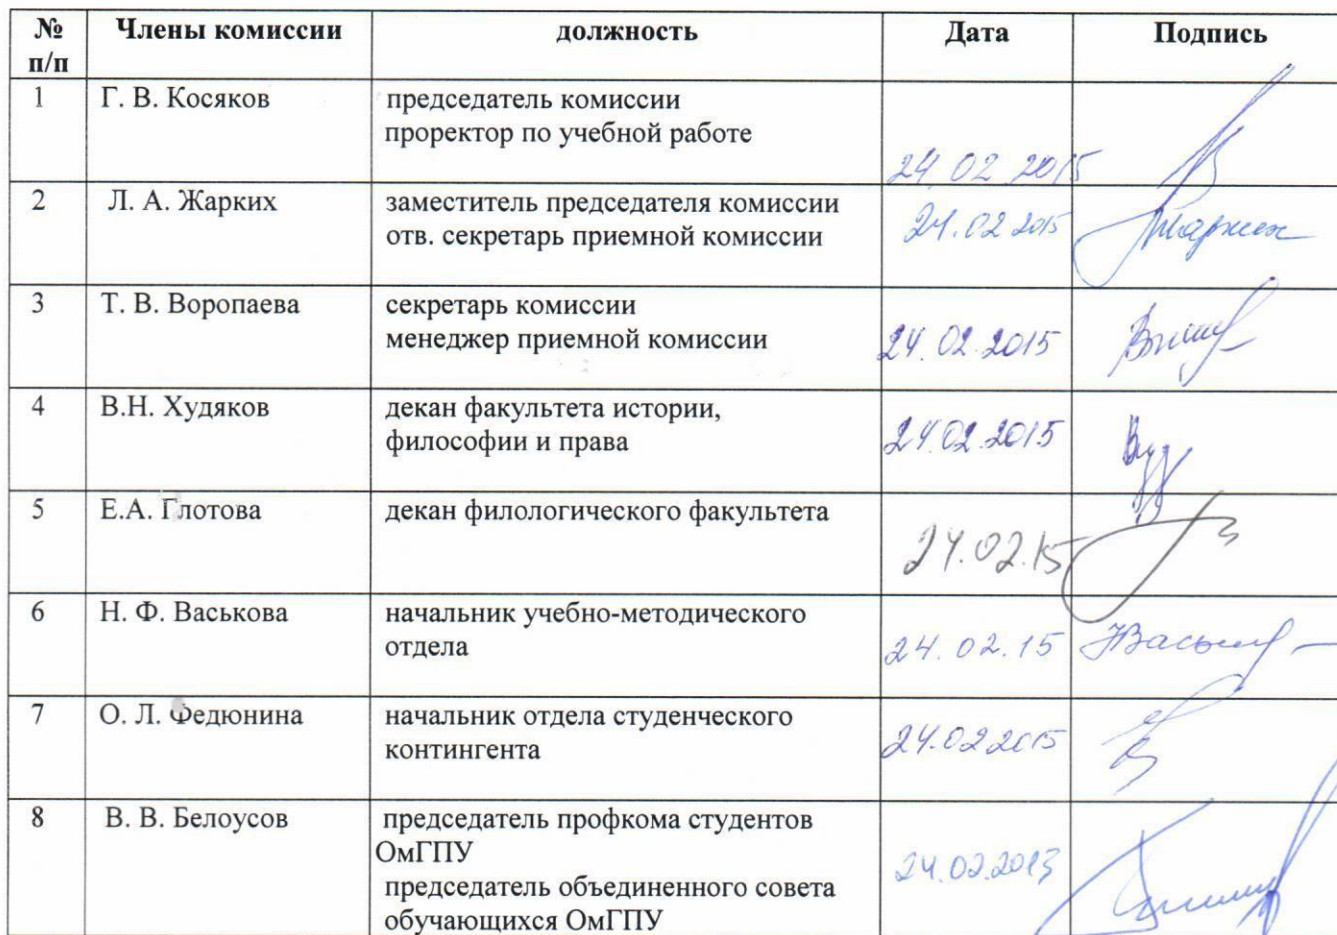 № п/п Члены комиссии должность Дата Подпись
1 Г. В. Косяков председатель комиссии
проректор по учебной работе
24.02.2015
2 Л. А. Жарких заместитель председателя комиссии
отв. секретарь приемной комиссии 24.02.2015 Жарких
3 Т. В. Воропаева секретарь комиссии
менеджер приемной комиссии 24.02.2015
4 В.Н. Худяков декан факультета истории,
философии и права 24.02.2015
5 Е.А. Глотова декан филологического факультета
24.02.15
6 Н. Ф. Васькова начальник учебно-методического
отдела 24.02.15
7 О. Л. Федюнина начальник отдела студенческого
контингента 24.02.2015
8 В. В. Белоусов председатель профкома студентов
ОмГПУ
24.02.2013
председатель объединенного совета
обучающихся ОмГПУ